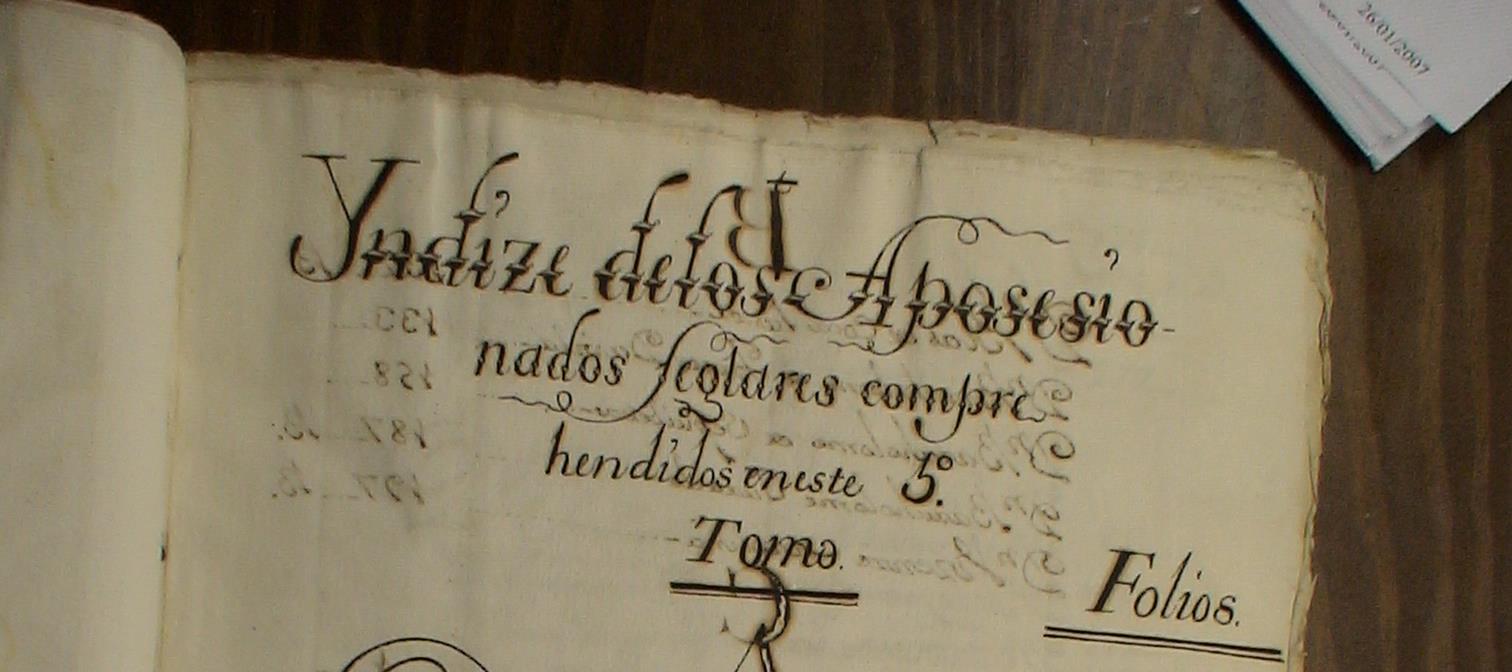 26/01/2007
Yndize delos Aposesio-
nados seglares compre
hendidos eneste 5º.
Tomo.
Folios.
133
158
187
197